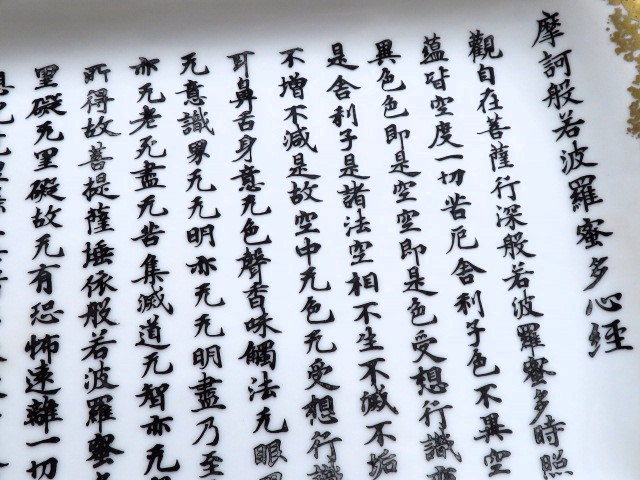 摩訶般若波羅蜜多心経
觀自在菩薩行深般若波羅蜜多時照
蘊皆空度一切苦厄舎利子色不異空
異色色即是空空即是色受想行識亦
是舎利子是諸法空相不生不滅不垢
不増不減是故空中无色无受想行識
耳鼻舌身意无色聲香味觸法无眼界
无意識界无无明亦无无明盡乃至
亦无老死盡无苦集滅道无智亦无得
所得故菩提薩埵依般若波羅蜜多
罣礙无罣礙故无有恐怖遠離一切